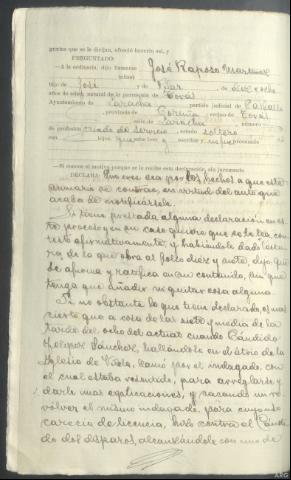 preciso que se le dirijan, ofreció hacerlo así, y
PREGUNTADO:
—A la ordinaria, dijo llamarse José Raposo Martínez
hijo de José y de Pilar de diez y ocho
años de edad, natural de la parroquia de Lovás
Ayuntamiento de Laracha partido judicial de Carballo
provincia de Coruña vecino de Lovás
calle de Laracha número
de profesión criado de servicio, estado soltero
con hijos, que sabe leer y escribir y
Si conoce el motivo porque se le recibe esta declaración sin juramento
DECLARA: Que cree era por los hechos a que este
sumario se contrae, en virtud del auto que
acaba de notificársele.
Si tiene prestada alguna declaración en es
te proceso y en su caso quiere que se le lea con
testó afirmativamente, y habiéndole dado lectu
ra, de la que obra al folio diez y siete, dijo que
se afirma y ratifica en su contenido, sin que
tenga que añadir ni quitar cosa alguna
Si no obstante lo que tiene declarado, es mas
cierto que a cosa de las siete y media de la
tarde del ocho del actual cuando Cándido
Sánchez, hallándose en el atrio de la
Iglesia de llamó por el indagado, con
el cual estaba resentido, para arreglarse y
darle mas explicaciones, y sacando un re
vólver el mismo indagado, para cuyo uso
carecía de licencia, hizo contra el Cándi
do dos disparos, alcanzándole con uno de
ARG